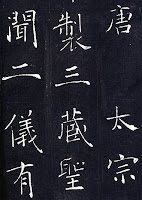 唐太宗
製三蔵聖
聞二儀有